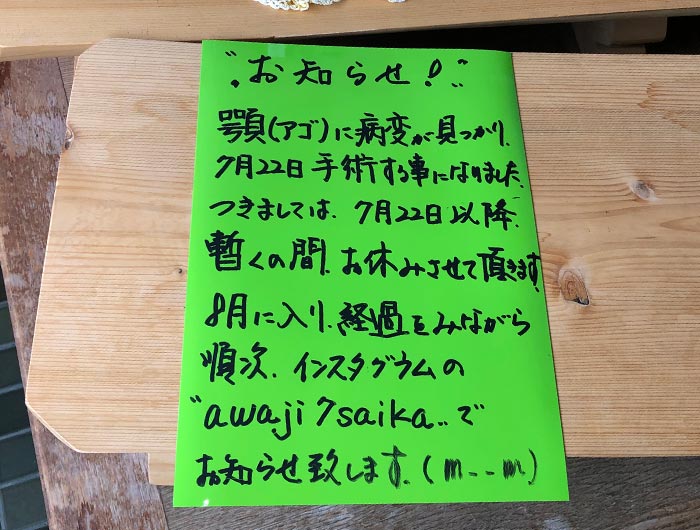 "お知らせ!"
顎(アゴ)に病変が見つかり、
7月22日手術する事になりました。
つきましては、7月22日以降、
暫くの間、お休みさせて頂きます。
8月に入り、経過をみながら
順次、インスタグラムの
"awaji7saika"で
お知らせ致します。(m--m)